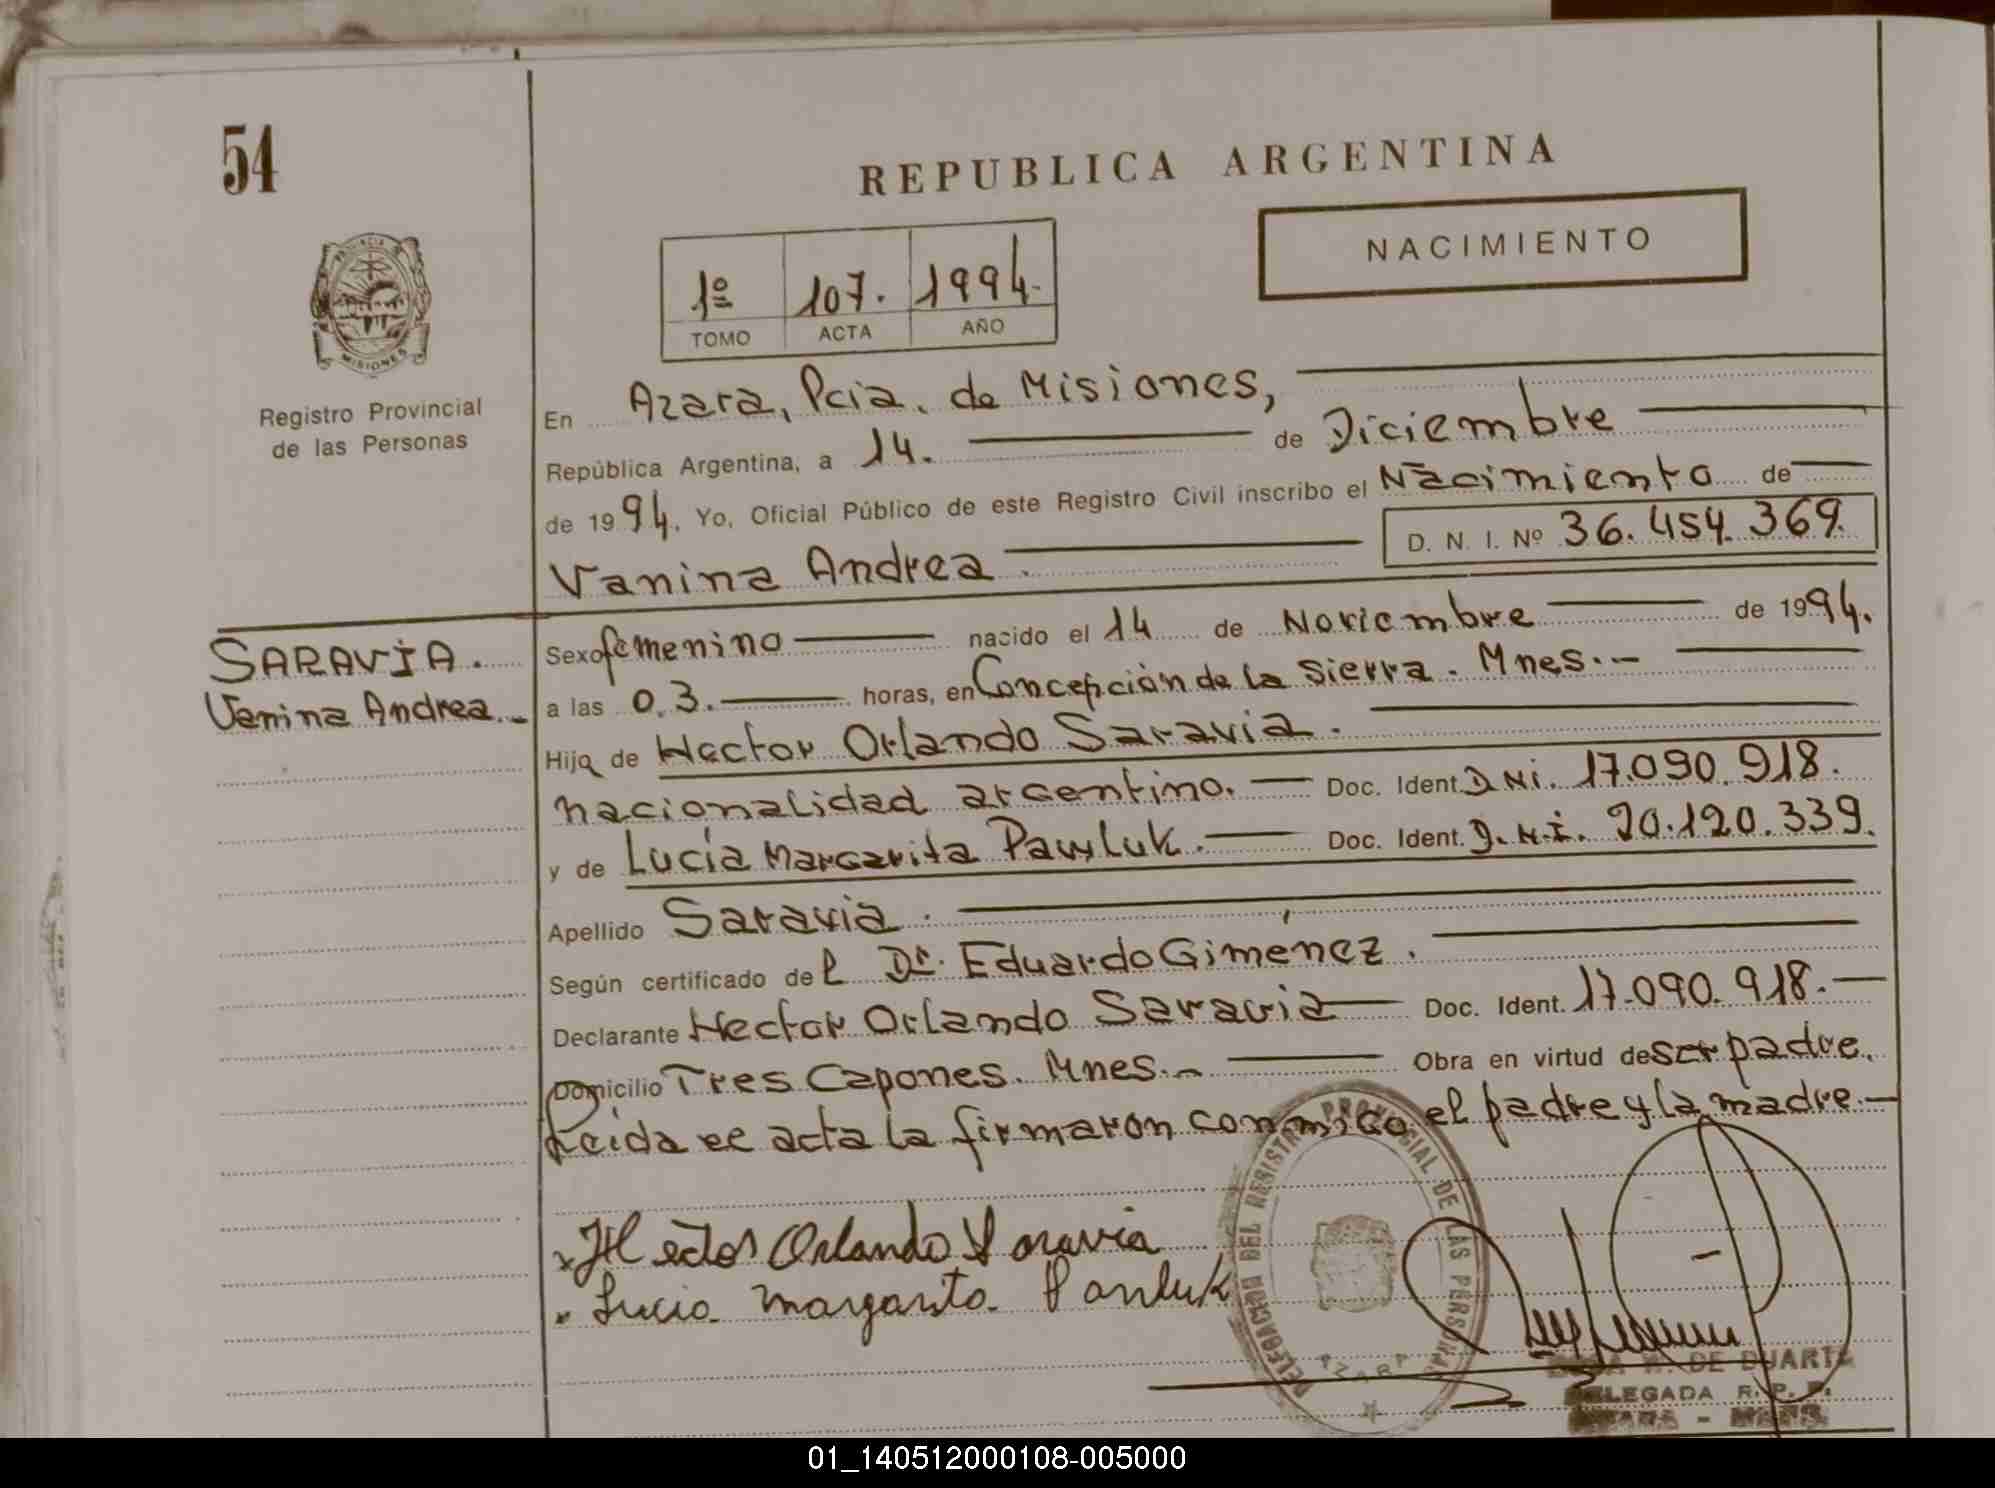 54
REPUBLICA ARGENTINA
NACIMIENTO
PROVINCIA DE
MISIONES
1º 107. 1994.
TOMO ACTA AÑO
Registro Provincial
de las Personas
En Azara, Pcia. de Misiones,
República Argentina, a 14. de Diciembre
de 1994. Yo, Oficial Público de este Registro Civil inscribo el Nacimiento de
Vanina Andrea. D. N. I. Nº 36.454.369.
SARAVIA.
Vanina Andrea.-
Sexo femenino nacido el 14 de Noviembre de 1994.
a las 03. horas, en Concepción de la Sierra. Mnes.-
Hija de Hector Orlando Saravia.
nacionalidad argentino. Doc. Ident. D.N.I. 17.090.918.
y de Lucía Margarita Pawluk. Doc. Ident. D.N.I. 20.120.339.
Apellido Saravia.
Según certificado del Dr. Eduardo Giménez.
Declarante Hector Orlando Saravia Doc. Ident. 17.090.918.-
Domicilio Tres Capones. Mnes.- Obra en virtud de ser padre.
Leida el acta la firmaron conmigo el padre y la madre.-
x Hector Orlando Saravia
x Lucia margarita Pawluk
DELEGACION DEL REGISTRO PROVINCIAL DE LAS PERSONAS
AZARA
DE DUARTE
DELEGADA R. P. P.
AZARA - MNES.
01_140512000108-005000